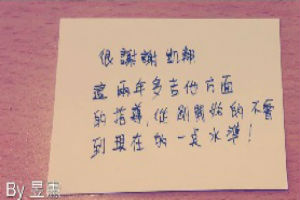 很謝謝 凱翔
這兩年多吉他方面
的指導,從剛開始的不會
到現在的一定水準!
By 昱儒